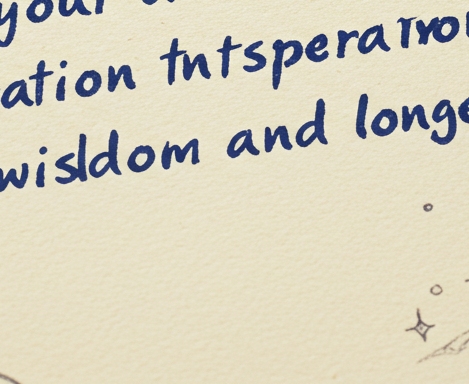 your
ation tntsperaтvo
wisldom and longe